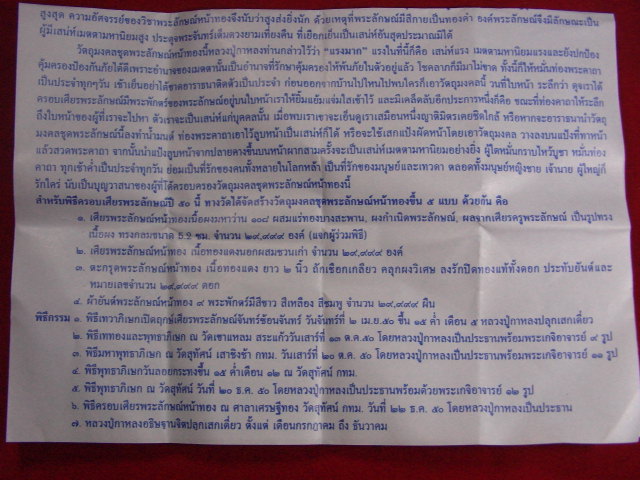 สูงสุด ความอัศจรรย์ของวิชาพระลักษณ์หน้าทองจึงนับว่าสูงส่งยิ่งนัก ด้วยเหตุที่พระลักษณ์มีสีกายเป็นทองคำ องค์พระลักษณ์จึงมีลักษณะเป็น
ผู้มีเสน่ห์เมตตามหานิยมสูง ประดุจพระจันทร์เต็มดวงยามเที่ยงคืน ที่เยือกเย็นเป็นเสน่ห์อันสุดประมาณมิได้
วัตถุมงคลชุดพระลักษณ์หน้าทองนี้หลวงปู่กาหลงท่านกล่าวไว้ว่า "แรงมาก" แรงในที่นี้ก็คือ เสน่ห์แรง เมตตามหานิยมแรงและยังปกป้อง
คุ้มครองป้องกันภัยได้ดีเพราะอำนาจของเมตตานั้นเป็นอำนาจที่รักษาคุ้มครองให้พ้นภัยในตัวอยู่แล้ว โชคลาภก็มีมาไม่ขาด ทั้งนี้ก็ให้หมั่นท่องพระคาถา
เป็นประจำทุกๆวัน เช้าเย็นอย่าได้ขาดอาราธนาติดตัวเป็นประจำ ก่อนออกจากบ้านไปไหนไปพบใครก็เอาวัตถุมงคลนี้ วนที่ใบหน้า ระลึกว่า ดุจเราได้
ครอบเศียรพระลักษณ์มีพระพักตร์ของพระลักษณ์อยู่บนใบหน้าเราให้ยิ้มแย้มแจ่มใสเข้าไว้ และมีเคล็ดลับอีกประการหนึ่งก็คือ ขณะที่ท่องคาถาให้ระลึก
ถึงใบหน้าของผู้ที่เราจะไปหา ตัวเราจะเป็นเสน่ห์แก่บุคคลนั้น เมื่อพบเราเขาจะเย็นดูเราเสมือนหนึ่งญาติมิตรเคยชิดใกล้ หรือหากจะอาราธนานำวัตถุ
มงคลชุดพระลักษณ์นี้ลงทำน้ำมนต์ ท่องพระคาถาเอาไว้ลูบหน้าเป็นเสน่ห์ก็ได้ หรือจะใช้เสกแป้งผัดหน้าโดยเอาวัตถุมงคล วางลงบนแป้งที่ทาหน้า
แล้วสวดพระคาถา จากนั้นนำแป้งลูบหน้าจากปลายคางขึ้นบนหน้าผากสามครั้งจะเป็นเสน่ห์เมตตามหานิยมอย่างยิ่ง ผู้ใดหมั่นกราบไหว้บูชา หมั่นท่อง
คาถา ทุกเช้าค่ำเป็นประจำทุกวัน ย่อมเป็นที่รักของคนทั้งหลายในโลกหล้า เป็นที่รักของมนุษย์และเทวดา ตลอดทั้งมนุษย์หญิงชาย เจ้านาย ผู้ใหญ่ก็
รักใคร่ นับเป็นบุญวาสนาของผู้ที่ได้ครอบครองวัตถุมงคลชุดพระลักษณ์หน้าทองนี้
สำหรับพิธีครอบเศียรพระลักษณ์ปี ๕๐ นี้ ทางวัดได้จัดสร้างวัตถุมงคลชุดพระลักษณ์หน้าทองขึ้น ๔ แบบ ด้วยกัน คือ
๑. เศียรพระลักษณ์หน้าทองเนื้อผงมหาว่าน ๑๐๘ ผสมแร่ทองบางสะพาน, ผงกำเนิดพระลักษณ์, ผลจากเศียรครูพระลักษณ์ เป็นรูปทรง
เนื้อผง ทรงกลมขนาด 5.2 ซม. จำนวน ๒๙,๙๙๙ องค์ (แจกผู้ร่วมพิธี)
๒. เศียรพระลักษณ์หน้าทอง เนื้อทองแดงนอกผสมชวนเก่า จำนวน ๒๙,๙๙๙ องค์
๓. ตะกรุดพระลักษณ์หน้าทอง เนื้อทองแดง ยาว ๒ นิ้ว ถักเชือกเกลียว คลุกผงวิเศษ ลงรักปิดทองแท้ทั้งดอก ประทับยันต์และ
หมายเลขจำนวน ๒๙,๙๙๙ ดอก
๔. ผ้ายันต์พระลักษณ์หน้าทอง ๙ พระพักตร์มีสีขาว สีเหลือง สีชมพู จำนวน ๒๙,๙๙๙ ผืน
พิธีกรรม ๑. พิธีเทวาภิเษกเปิดฤกษ์เศียรพระลักษณ์จันทร์ซ้อนจันทร์ วันจันทร์ที่ ๒ เม.ย.๕๐ ขึ้น ๑๕ ค่ำ เดือน ๕ หลวงปู่กาหลงปลุกเสกเดี่ยว
๒. พิธีเททองและพุทธาภิเษก ณ วัดเขาแหลม สระแก้ววันเสาร์ที่ ๑๓ ต.ค.๕๐ โดยหลวงปู่กาหลงเป็นประธานพร้อมพระเกจิอาจารย์ ๙ รูป
๓. พิธีมหาพุทธาภิเษก ณ วัดสุทัศน์ เสาชิงช้า กทม. วันเสาร์ที่ ๒๐ ต.ค. ๕๐ โดยหลวงปู่กาหลงเป็นประธานพร้อมพระเกจิอาจารย์ ๑๑ รูป
๔. พิธีพุทธาภิเษกวันลอยกระทงขึ้น ๑๕ ค่ำเดือน ๑๒ ณ วัดสุทัศน์ กทม.
๕. พิธีพุทธาภิเษก ณ วัดสุทัศน์ วันที่ ๒๐ ธ.ค. ๕๐ โดยหลวงปู่กาหลงเป็นประธานพร้อมด้วยพระเกจิอาจารย์ ๑๒ รูป
๖. พิธีครอบเศียรพระลักษณ์หน้าทอง ณ ศาลาเศรษฐีทอง วัดสุทัศน์ กทม. วันที่ ๒๒ ธ.ค. ๕๐ โดยหลวงปู่กาหลงเป็นประธาน
๗. หลวงปู่กาหลงอธิษฐานจิตปลุกเสกเดี่ยว ตั้งแต่ เดือนกรกฎาคม ถึง ธันวาคม